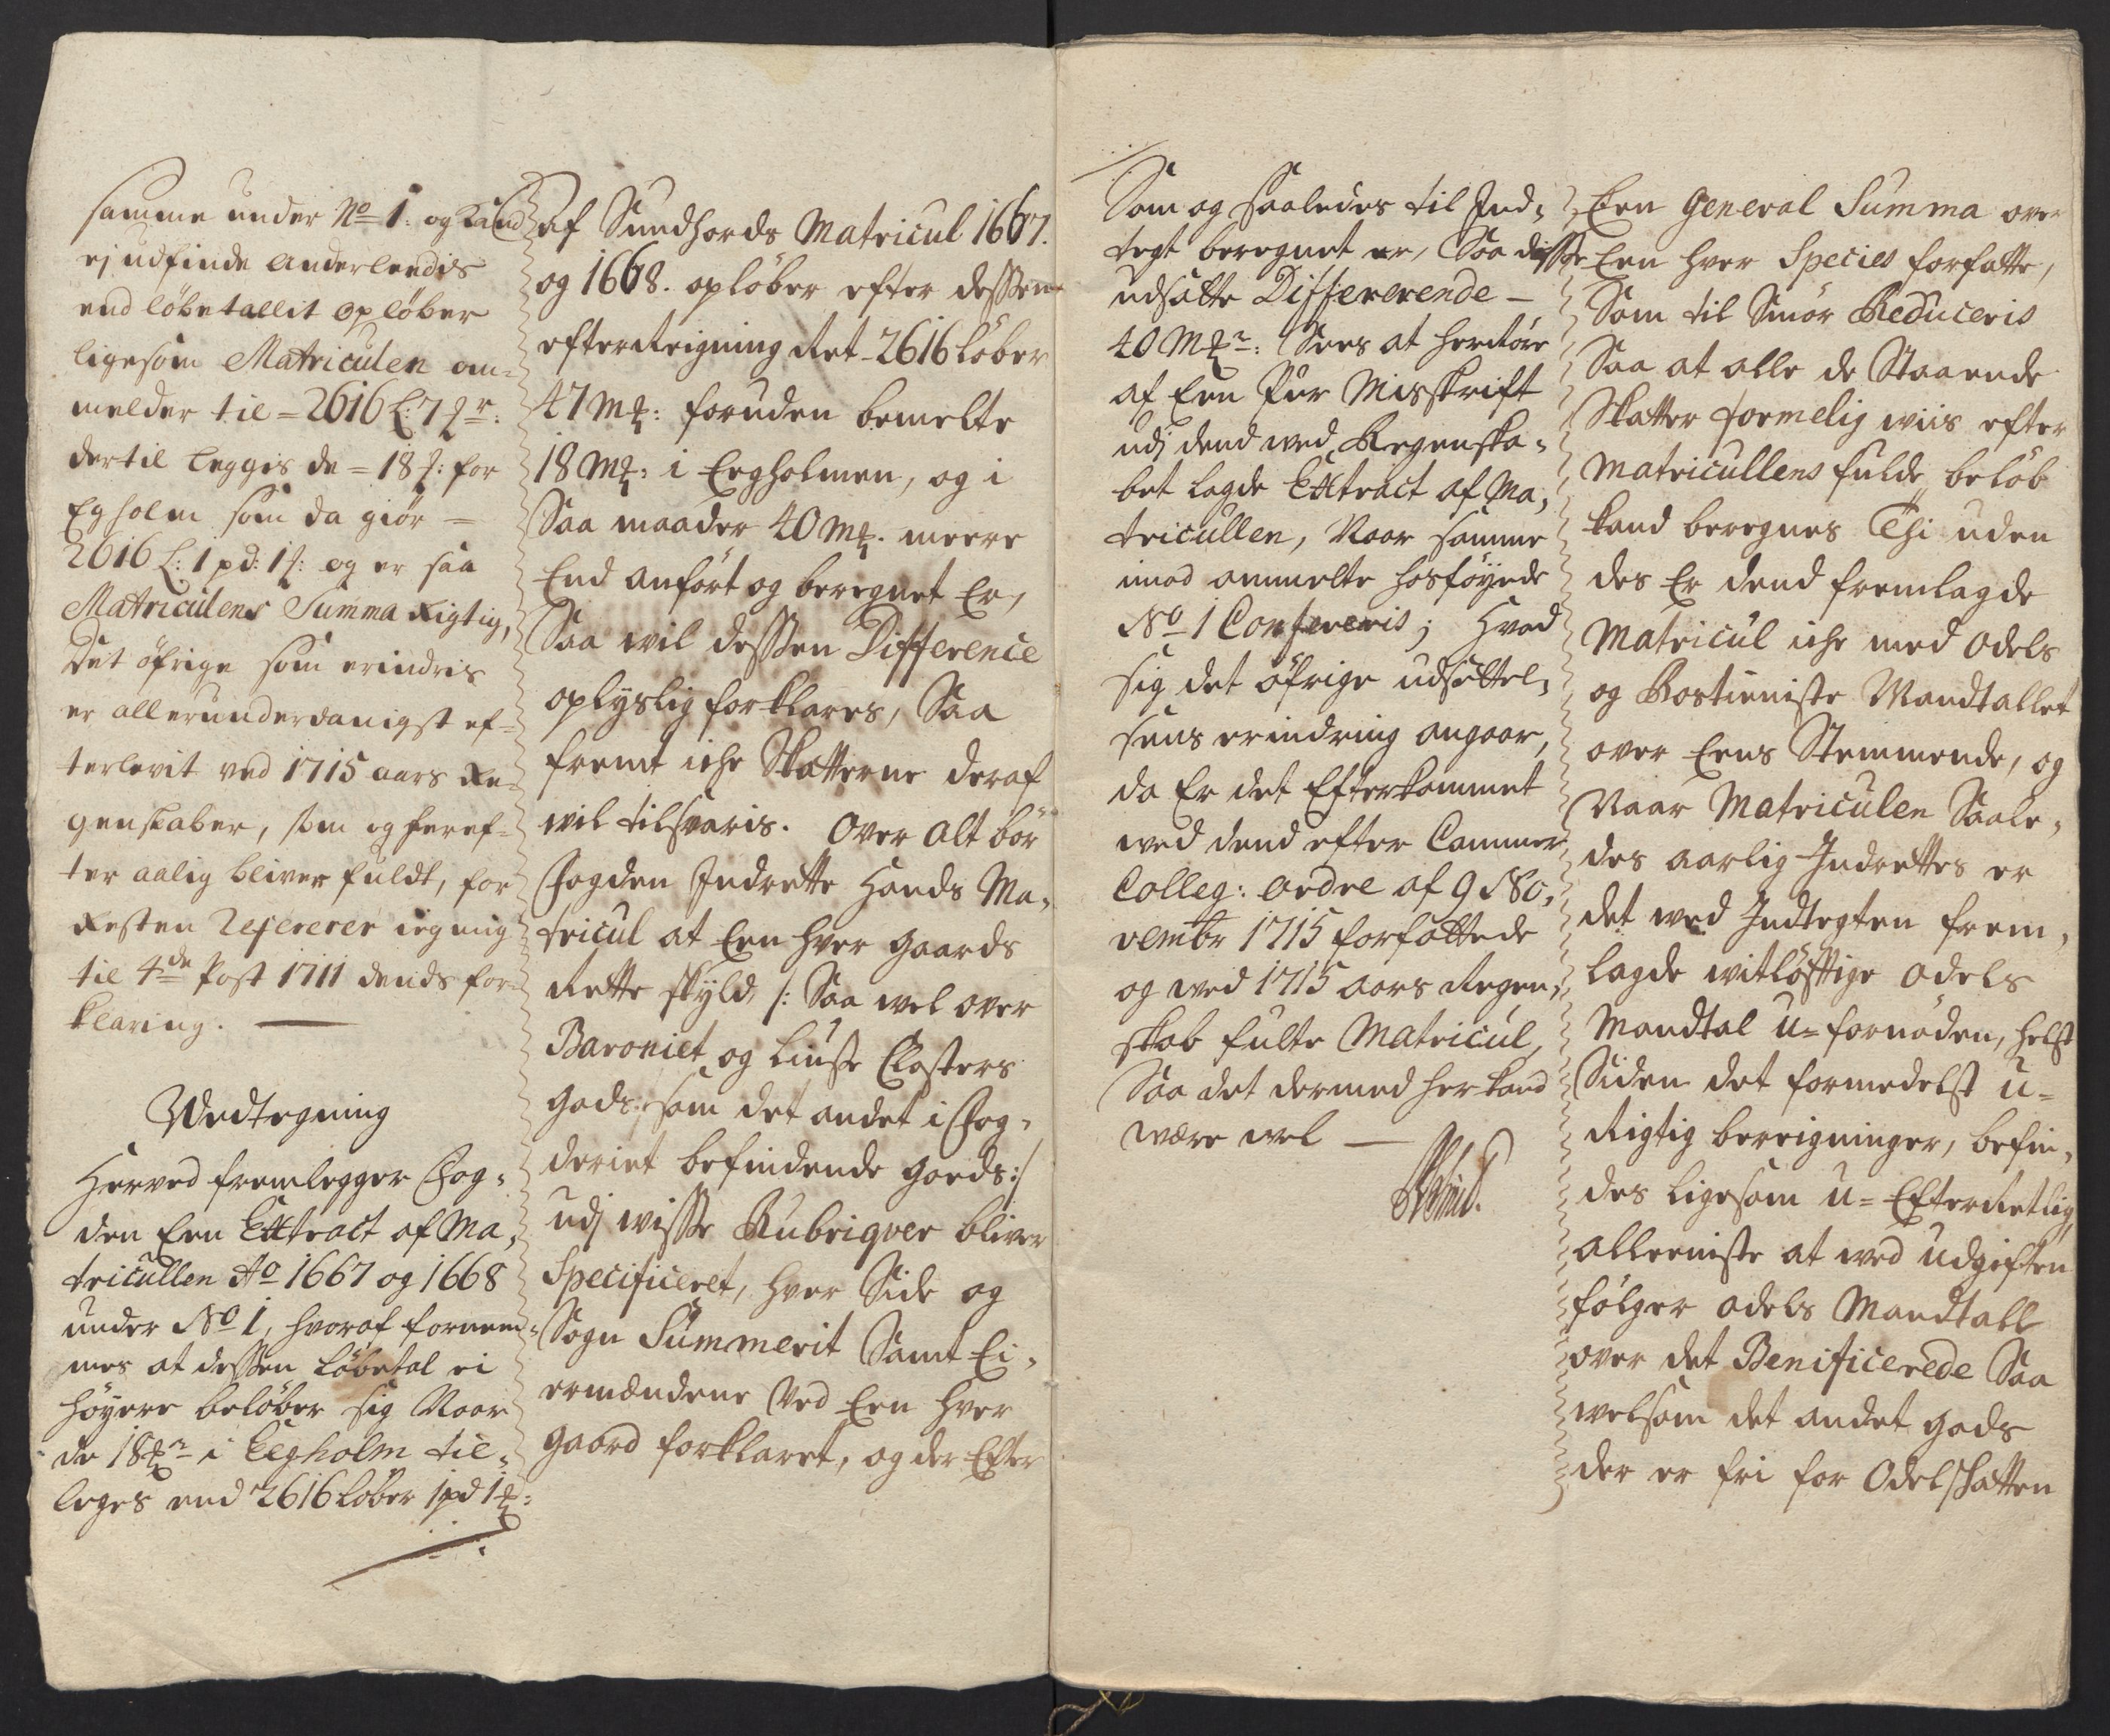 samme under No 1. og kand
ej udfinde anderleedis
end löbetallit opløber
ligesom Matriculen om-
melder til = 2616 L: 7
dertil legges de = 18 for
Egholm som da giör =
2616 L: 1 pd: 1 og er saa
Matriculens Summa Rigtig,
det öfrige som erindris
er allerunderdanigst ef-
terlevit ved 1715 aars Re-
genskaber, som og heref-
ter aalig bliver fuldt, for
Resten Refererer ieg mig
til 4de Post 1711 dends for-
klaring.
Wedtegning
Herved fremlegger Fog-
den Een Extract af Ma-
tricullen Ao 1667 og 1668
under No 1, hvoraf fornem-
mes at dessen Löbetal ei
höyere belöber sig Naar
de 18 i Eegholm til-
leges end 2616 Löber 1 pd 1
af Sundhords Matricul 1667.
og 1668. oplöber efter dessen
efterReigning Ret 2616 löber
47 Mk: foruden bemelte
18 Mk: i Eegholmen, og i
Saa maader 40 Mk. meere
End anfört og beregnet Er,
Saa wil dessen Difference
oplyslig forklares, Saa
fremt iche Skatterne deraf
wil tilsvaris. Over alt bör
Fogden Indrette Hands Ma-
tricul at Een hver gaards
Rette skyld /: Saa wel over
Baroniet og Liuse Closters
gods som det andet i Fog-
deriet befindende goeds :/
udj wisse Rubriqver bliver
Specificeret, hver Side og
Sogn Summerit Samt Ei-
ermændene Ved Een hver
gaard forklaret, og der Efter
Som og saaledes til Ind-
tegt beregnet er, Saa disse
udsatte Differerende
40 Mk: Sees at herröre
af Een Pur Misskrift
udj dend wed Regenska-
bet lagde Extract af Ma-
tricullen, Naar samme
imod anmelte hosföyede
No 1 Confereris; Hvad
sig det öfrige udsettel-
sens erindring angaar,
da Er det Efterkommet
wed dend efter Cammer
Colleg: ordre af 9 No-
vembr 1715 forfattede
og wed 1715 aars Regen-
skab fulte Matricul,
Saa det dermed her kand
være wel
Een General Summa over
Een hver Species forfatte,
Som til Smör Reduceris
Saa at alle de Staaende
Skatter formelig wiis efter
Matricullens fulde belöb
kand beregnes Thi uden
des Er dend fremlagde
Matricul iche med Odels
og Rostieniste Mandtallet
over Eens Stemmende, og
Naar Matriculen Saale-
des aarlig Indrettes er
det wed Indtegten frem-
lagde witlöfftige Odels
Mandtal u-fornöden, helst
Siden det formedelst u-
Rigtig bereigninger, befin-
des ligesom u-Efterretlig,
alleeniste at wed udgiften
fölger Odels Mandtall
over det Benificerede Saa
welsom det andet gods
der er fri for Odelskatten